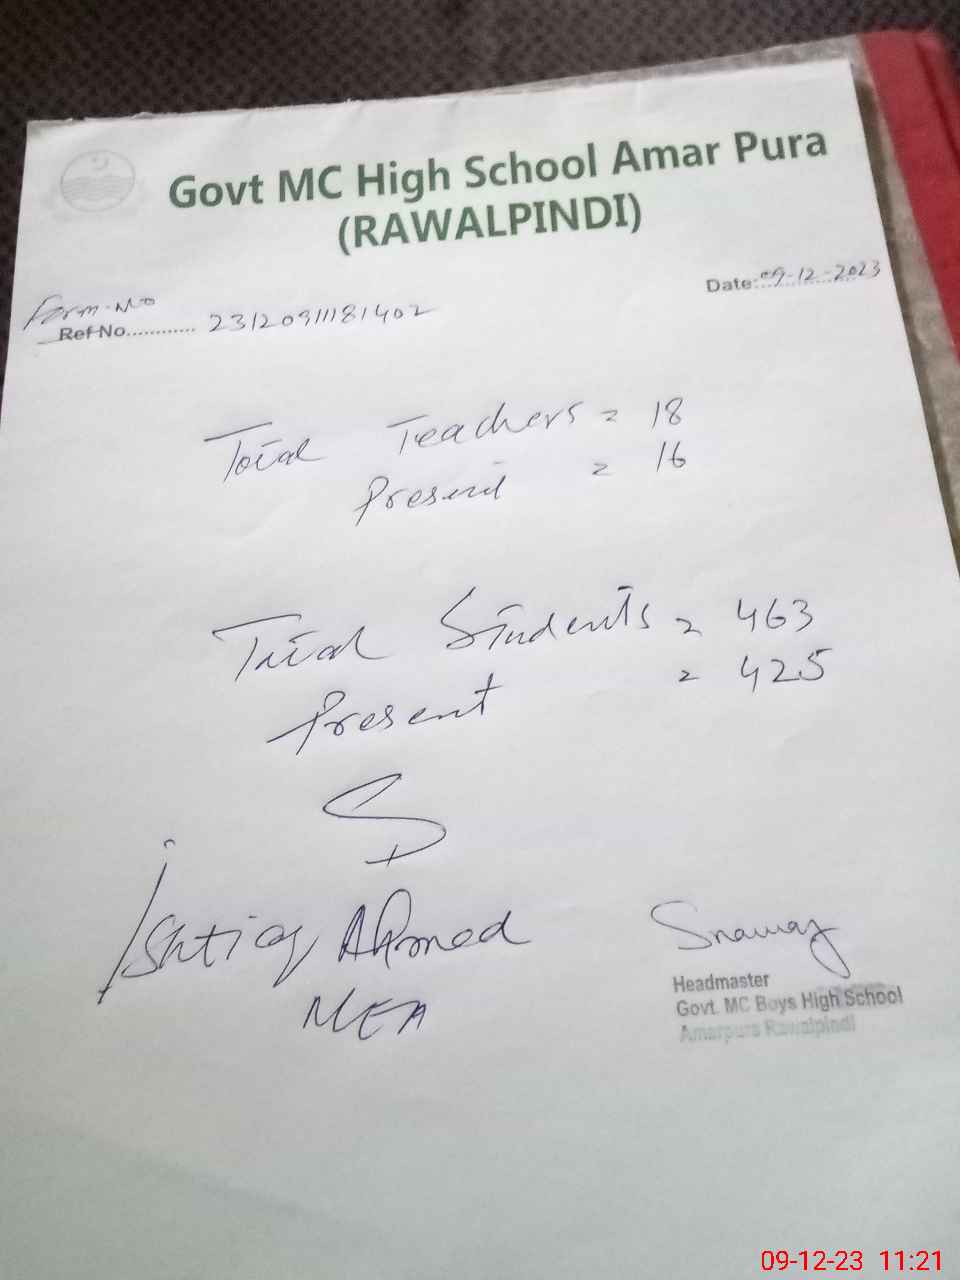 Govt MC High School Amar Pura
(RAWALPINDI)
Date: 09-12-2023
Form-No
Ref No............ 2312091181402
Total Teachers = 18
Present = 16
Total Students = 463
Present = 425
Ishtiaq Ahmed
MEA
Headmaster
Govt. MC Boys High School
Amarpura Rawalpindi
09-12-23 11:21